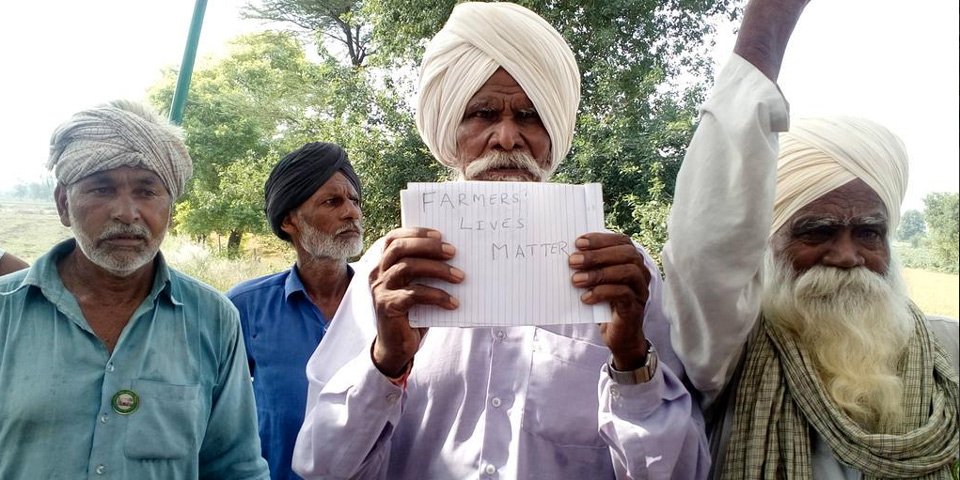 FARMERS'
LIVES
MATTER